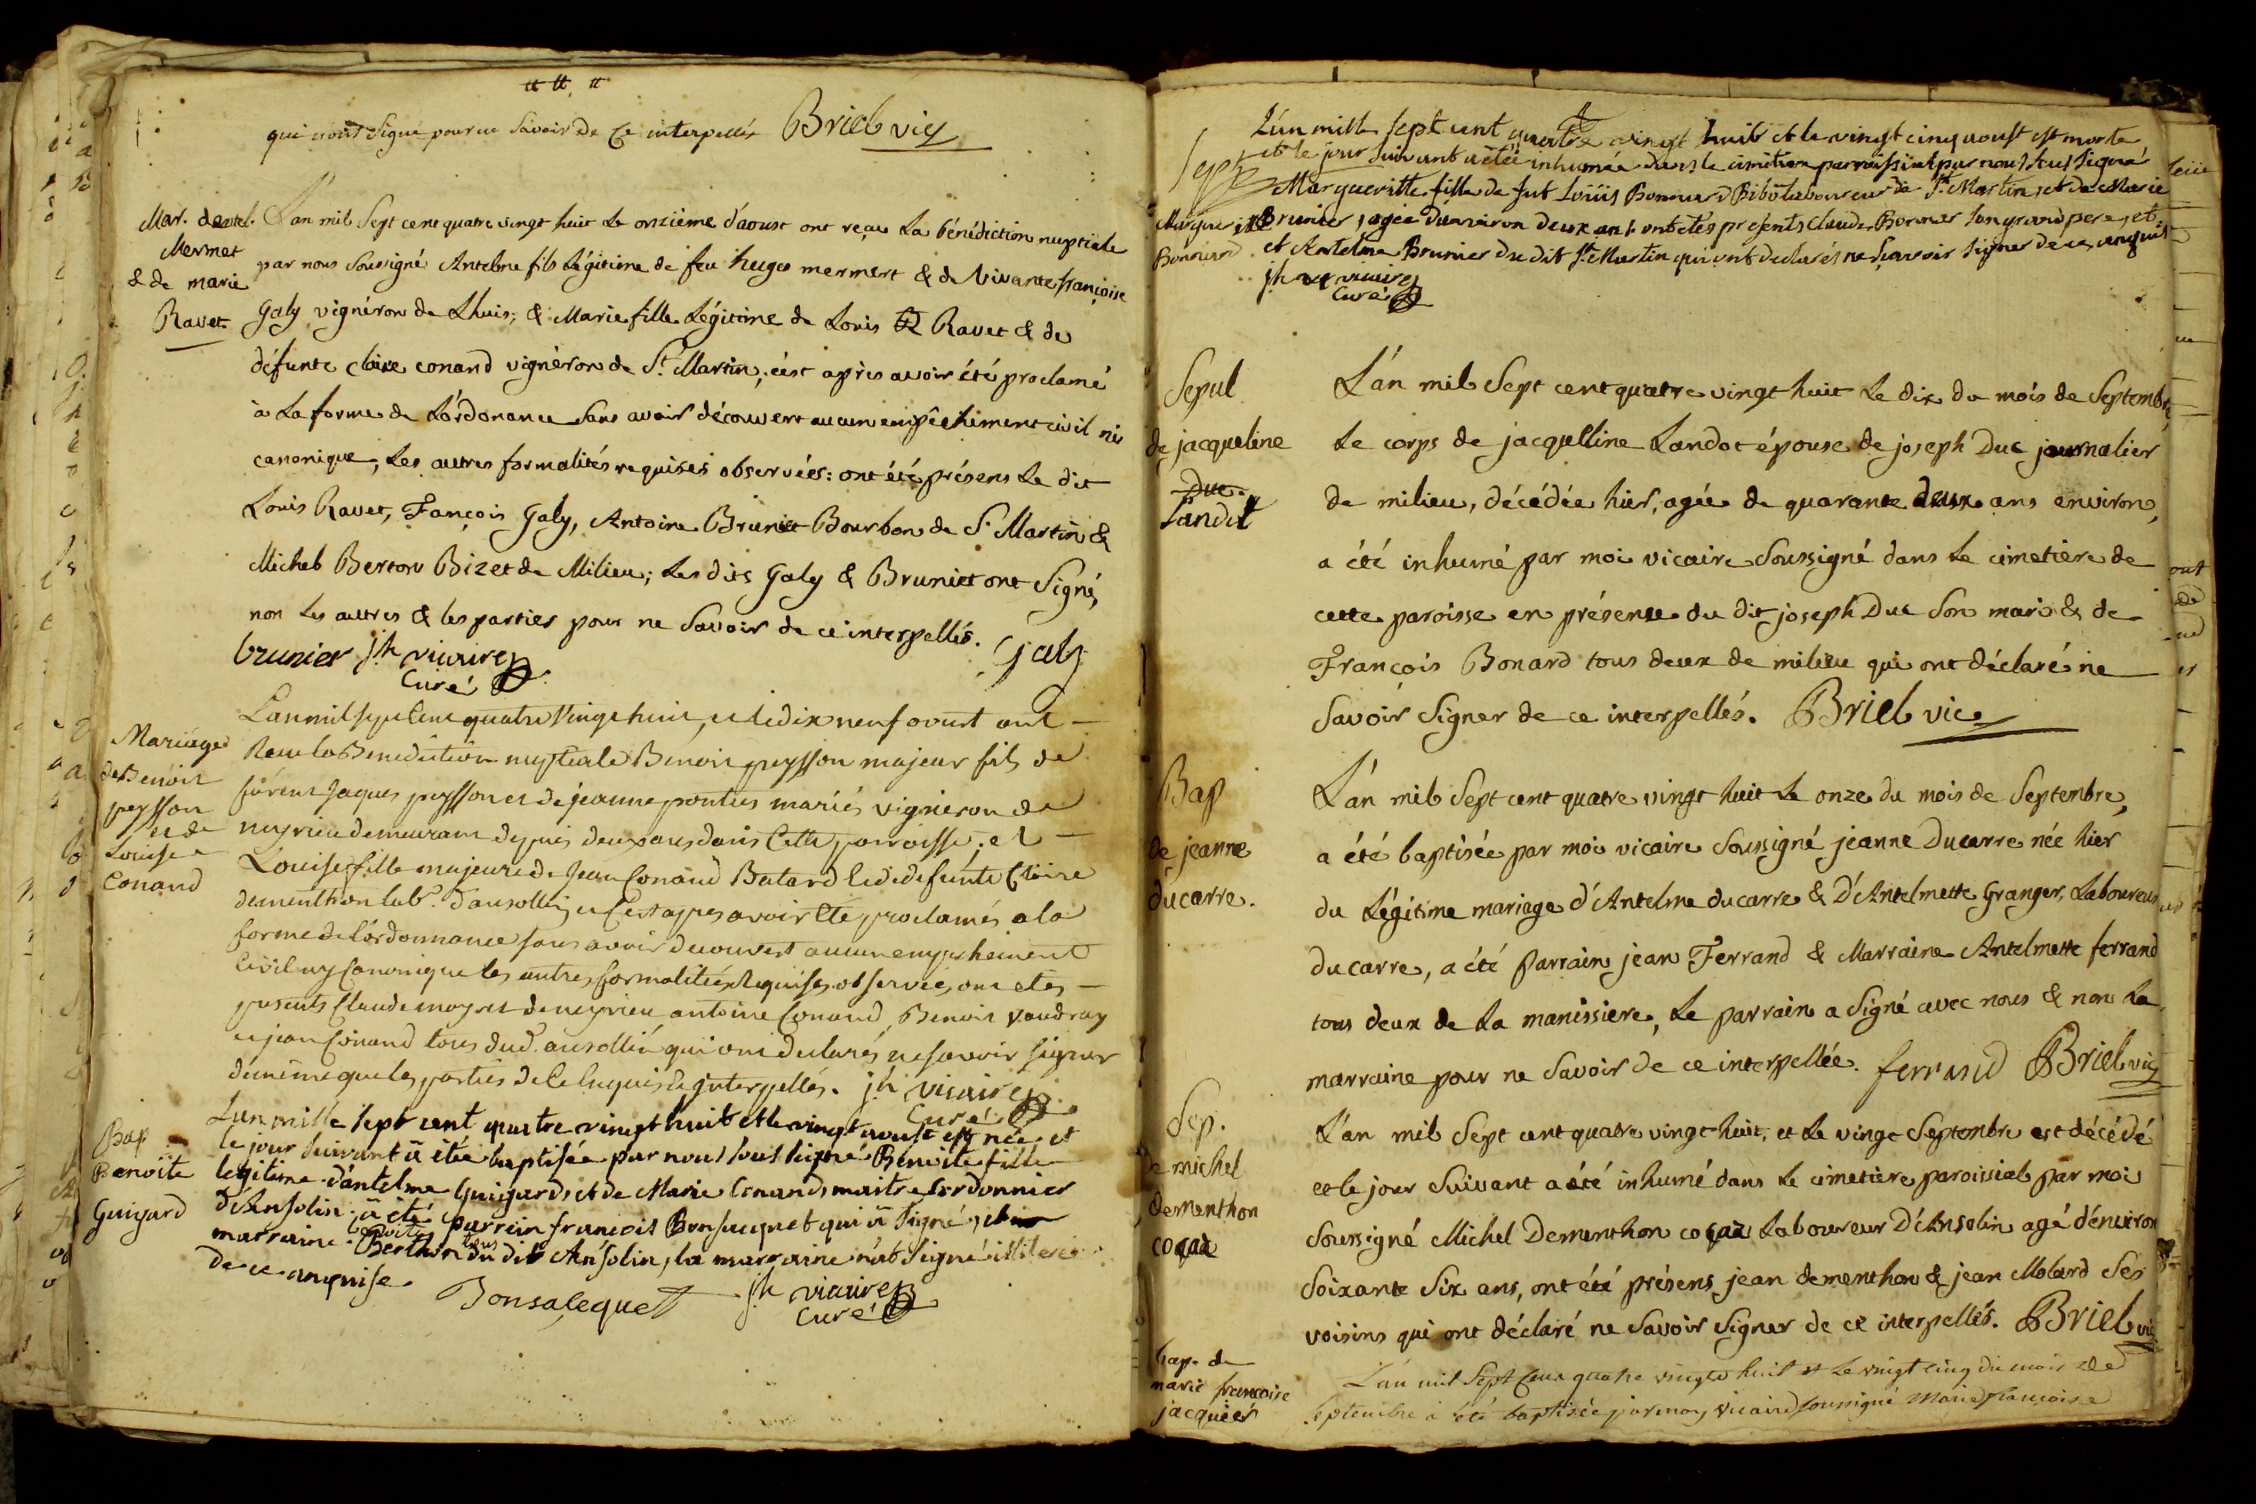 qui n'ont Signé pour ne Savoir de Ce interpellés Briel vic
Mar. d'antel.
Mermet
& de marie
Ravet
L'an mil Sept cent quatre vingt huit Le onzième d'aoust ont reçu La bénédiction nuptiale
par nous Soussigné Antelme fils Légitime de feu hugo mermert & de vivante françoise
Galy vignéron de Lhuis; & Marie fille Légitime de Louis Ravet & de
défunte claire conand vignéron de St. Martin; c'est après avoir été proclamé
à La forme de L'ordonance Sans avoir découvert aucun empêchement civil ni
canonique, Les autres formalités requises observées: ont été présens Le dit
Louis Ravet, François Galy, Antoine Brunier Bourbon de St. Martin &
Michel Berton Bizet de Milieu; Les dits Galy & Brunier ont Signé,
non Les autres & les parties pour ne Savoir de ce interpellés. Galy
brunier jh vicaire
Curé
Mariage
de Benoit
peysson
et de
Louise
Conand
L'an mil sept cent quatre vingt huit, et le dix neuf oust ont
Receu la Benediction nuptiale Benoit peysson majeur fils de
furent Jaques peysson et de jeanne pontus mariés vigneron de
neyrieu demeurant depuis deux ans dans Cette parroisse. et
Louise fille majeure de Jean Conand Batard et de defunte Claire
dementhon labr. d'ansollin, et C'est apres avoir Eté proclamés a la
forme de l'ordonnance sans avoir decouvert aucun empechement
Civil ny Canonique les autres formalités Requises observées, ont etés
presents Claude moyret de neyrieu antoine Conand, Benoit vaudray
et jean Conand tous dud. ansollin qui ont declarés ne savoir signer
de même que les parties de Ce Enquis et interpellés. jh vicaire
Curé
Bap
Benoite
Guigard
L'an mille sept cent quatre vingt huit et le vingt aoust est née, et
le jour suivant à étée baptisée par nous sous signé Benoite fille
legitime d'antelme Guigard, et de Marie Conand, maitre Cordonnier
d'Ansolin. à été parrein francois Bonsacquet qui à signé, et
marraine benoite Berthon tous du dit Ansolin, la marraine n'at signé illiteré
de ce anquise
Bonsaçequet jh vicaire
Curé
Sept
Marguerite
Bonnard
L'an mille sept cent quatre vingt huit et le vingt cinq aoust est morte
et le jour suivant a étée inhumée dans le cimetiere parroissial par nous sous signé
Margueritte fille de fut Loüis Bonnard Ribo laboureur de St. Martin, et de Marie
Brunier, agée d'environ deux ans. ont etés presents Claude Bonnar son grand pere, et
et Antelme Brunier du dit St. Martin qui ont declarés ne sçavoir signer de ce anquis
jh vicaire
Curé
Sepul
de jacqueline
Duc
Landot
L'an mil Sept cent quatre vingt huit Le dix du mois de Septembre
Le corps de jacquelline Landot épouse de joseph Duc journalier
de milieu, décédée hier, agée de quarante deux ans environ,
a été inhumé par moi vicaire Soussigné dans Le cimetière de
cette paroisse en présence du dit joseph Duc Son mari & de
François Bonard tous deux de milieu qui ont déclaré ne
Savoir Signer de ce interpellés. Briel vic
Bap
de jeanne
ducarre.
L'an mil Sept cent quatre vingt huit Le onze du mois de Septembre,
a été baptisée par moi vicaire Soussigné jeanne Ducarre née hier
du Légitime mariage d'Antelme ducarre & D'Antelmette Granger, Laboureur
ducarre, a été Parrain jean Ferrand & Marraine Antelmette ferrand
tous deux de La manissiere, Le parrain a Signé avec nous & non La
marraine pour ne Savoir de ce interpellée. ferrand Briel vic
Sep.
de michel
dementhon
coçaz
L'an mil Sept cent quatre vingt huit, et Le vingt Septembre est décédé
et le jour Suivant a été inhumé dans Le cimetiere paroissial par moi
Soussigné Michel Dementhon coçaz Laboureur D'Ansolin agé d'environ
Soixante Six ans, ont été présens jean dementhon & jean Molard Ses
voisins qui ont déclaré ne Savoir Signer de ce interpellés. Briel vic
bap. de
marie francoise
jacquier
L'an mil Sept Cent quatre vingt huit et Le vingt cinq du mois de
Septembre à été baptisée par moy Vicaire soussigné Marie françoise